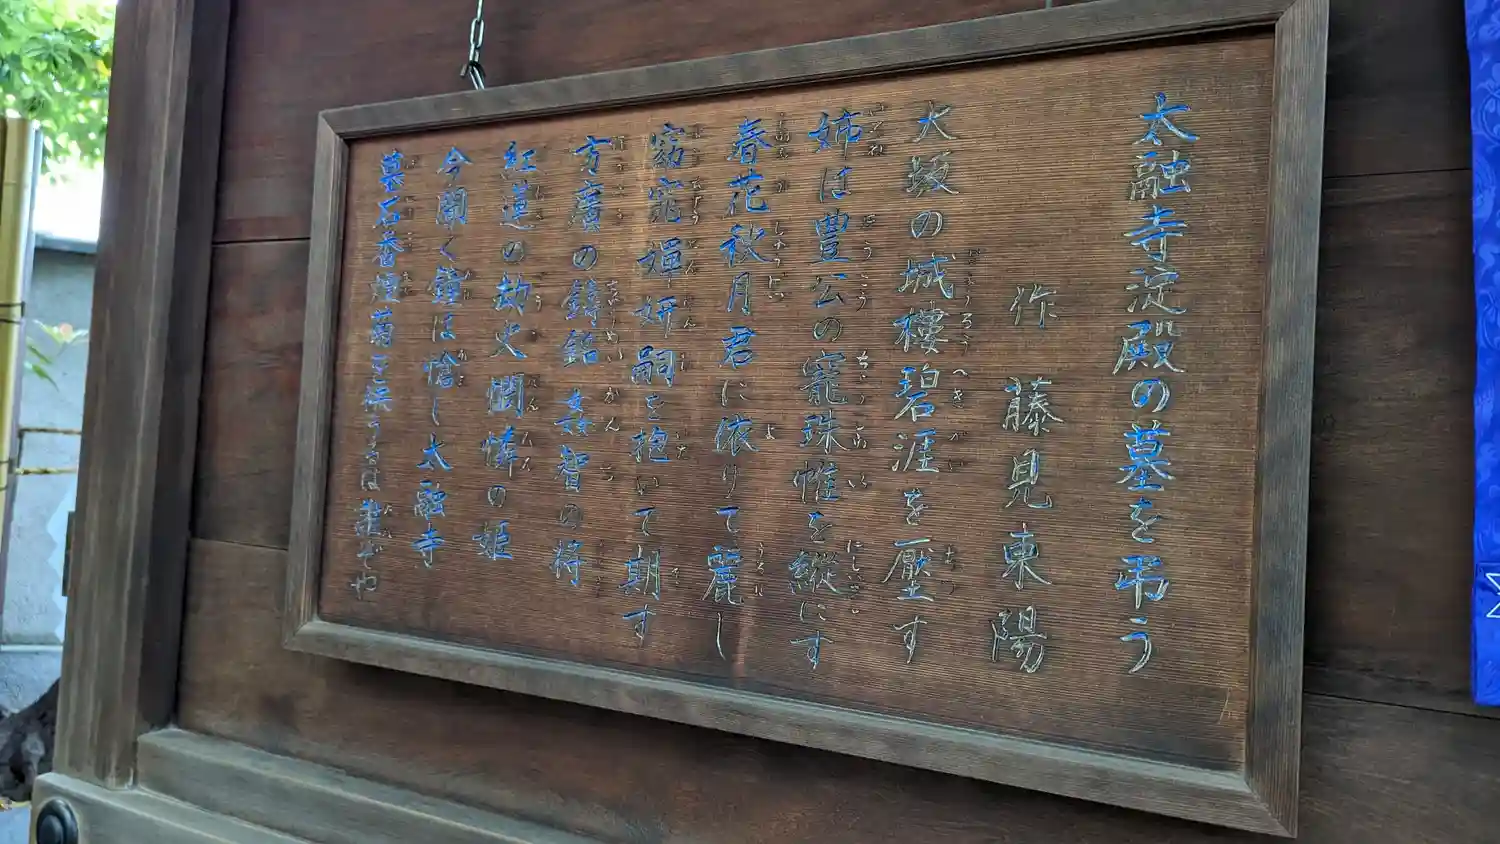 太融寺淀殿の墓を弔う
作 藤見東陽
大坂の城樓碧涯を壓す
姉は豊公の寵珠帷を縦にす
春花秋月君に依りて麗し
窈窕嬋妍嗣を抱いて期す
方廣の鑄銘姦智の将
紅蓮の劫火憫憐の姫
今聞く鐘は愴し太融寺
墓石香煙菊を供うるは誰ぞや